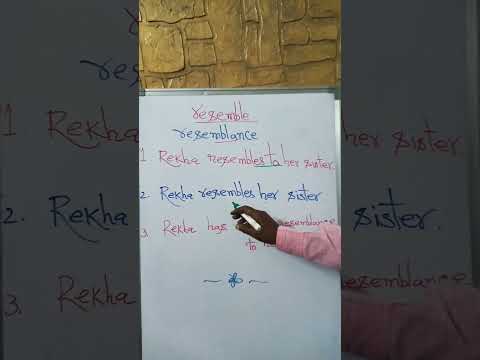 resemble
resemblance
1 Rekha resembles to her sister.
2. Rekha resembles her sister
3 Rekha has resemblance
to